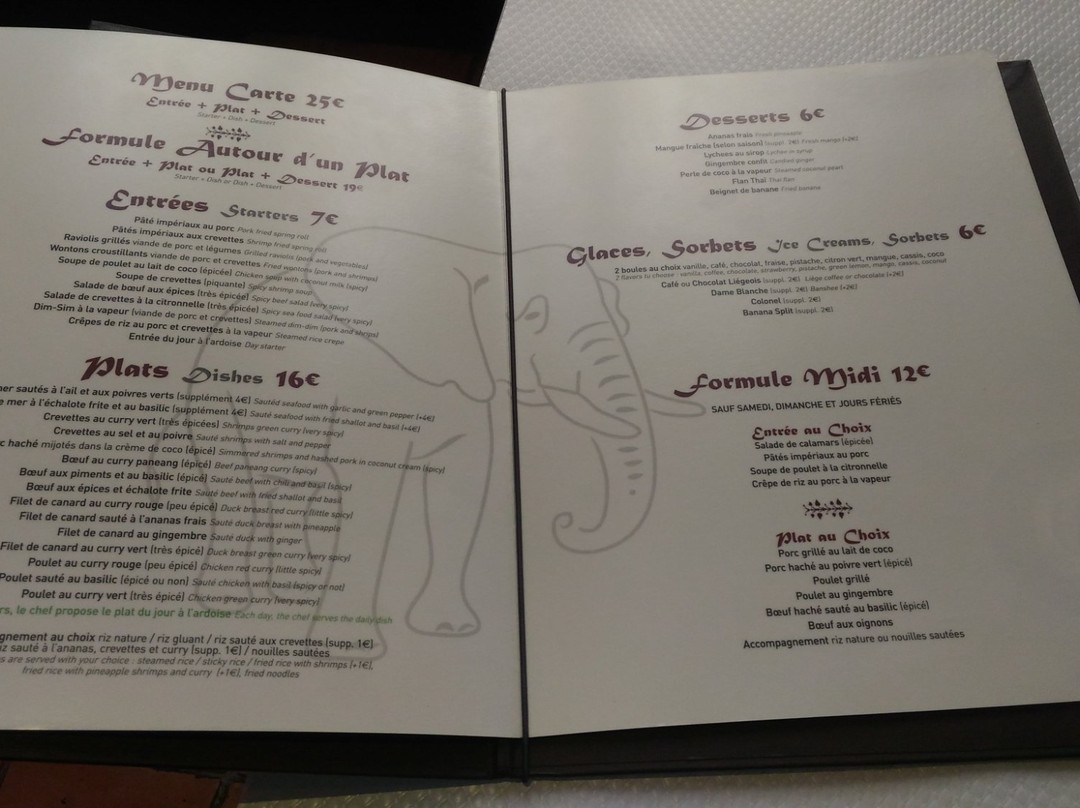 Menu Carte 25€
Entrée + Plat + Dessert
Starter + Dish + Dessert
Formule Autour d'un Plat
Entrée + Plat ou Plat + Dessert 19€
Starter + Dish or Dish + Dessert
Entrées Starters 7€
Pâté impériaux au porc Pork fried spring roll
Pâtés impériaux aux crevettes Shrimp fried spring roll
Raviolis grillés viande de porc et légumes Grilled ravioli (pork and vegetables)
Wontons croustillants viande de porc et crevettes Fried wontons (pork and shrimps)
Soupe de poulet au lait de coco (épicée) Chicken soup with coconut milk (spicy)
Soupe de crevettes (piquante) Spicy shrimp soup
Salade de bœuf aux épices (très épicée) Spicy beef salad (very spicy)
Salade de crevettes à la citronnelle (très épicée) Spicy sea food salad (very spicy)
Dim-Sim à la vapeur (viande de porc et crevettes) Steamed dim-dim (pork and shrips)
Crêpes de riz au porc et crevettes à la vapeur Steamed rice crepe
Entrée du jour à l'ardoise Day starter
Plats Dishes 16€
mer sautés à l'ail et aux poivres verts (supplément 4€) Sautéd seafood with garlic and green pepper (+4€)
mer à l'échalote frite et au basilic (supplément 4€) Sauté seafood with fried shallot and basil (+4€)
Crevettes au curry vert (très épicées) Shrimps green curry (very spicy)
Crevettes au sel et au poivre Sauté shrimps with salt and pepper
haché mijotés dans la crème de coco (épicé) Simmered shrimps and hashed pork in coconut cream (spicy)
Bœuf au curry paneang (épicé) Beef paneang curry (spicy)
Bœuf aux piments et au basilic (épicé) Sauté beef with chili and basil (spicy)
Bœuf aux épices et échalote frite Sauté beef with fried shallot and basil
Filet de canard au curry rouge (peu épicé) Duck breast red curry (little spicy)
Filet de canard sauté à l'ananas frais Sauté duck breast with pineapple
Filet de canard au gingembre Sauté duck with ginger
Filet de canard au curry vert (très épicé) Duck breast green curry (very spicy)
Poulet au curry rouge (peu épicé) Chicken red curry (little spicy)
Poulet sauté au basilic (épicé ou non) Sauté chicken with basil (spicy or not)
Poulet au curry vert (très épicé) Chicken green curry (very spicy)
rs, le chef propose le plat du jour à l'ardoise Each day, the chef serves the daily dish
gnement au choix riz nature / riz gluant / riz sauté aux crevettes (supp. 1€)
iz sauté à l'ananas, crevettes et curry (supp. 1€) / nouilles sautées
s are served with your choice : steamed rice / sticky rice / fried rice with shrimps (+1€),
fried rice with pineapple shrimps and curry (+1€), fried noodles
Desserts 6€
Ananas frais Fresh pineapple
Mangue fraîche (selon saison) (suppl. 2€) Fresh mango (+2€)
Lychees au sirop Lychee in syrup
Gingembre confit Candied ginger
Perle de coco à la vapeur Steamed coconut pearl
Flan Thaï Thaï flan
Beignet de banane Fried banana
Glaces, Sorbets Ice Creams, Sorbets 6€
2 boules au choix vanille, café, chocolat, fraise, pistache, citron vert, mangue, cassis, coco
2 flavors to choose : vanilla, coffee, chocolate, strawberry, pistache, green lemon, mango, cassis, coconut
Café ou Chocolat Liégeois (suppl. 2€) Liège coffee or chocolate (+2€)
Dame Blanche (suppl. 2€) Banshee (+2€)
Colonel (suppl. 2€)
Banana Split (suppl. 2€)
Formule Midi 12€
SAUF SAMEDI, DIMANCHE ET JOURS FÉRIÉS
Entrée au Choix
Salade de calamars (épicée)
Pâtés impériaux au porc
Soupe de poulet à la citronnelle
Crêpe de riz au porc à la vapeur
Plat au Choix
Porc grillé au lait de coco
Porc haché au poivre vert (épicé)
Poulet grillé
Poulet au gingembre
Bœuf haché sauté au basilic (épicé)
Bœuf aux oignons
Accompagnement riz nature ou nouilles sautées